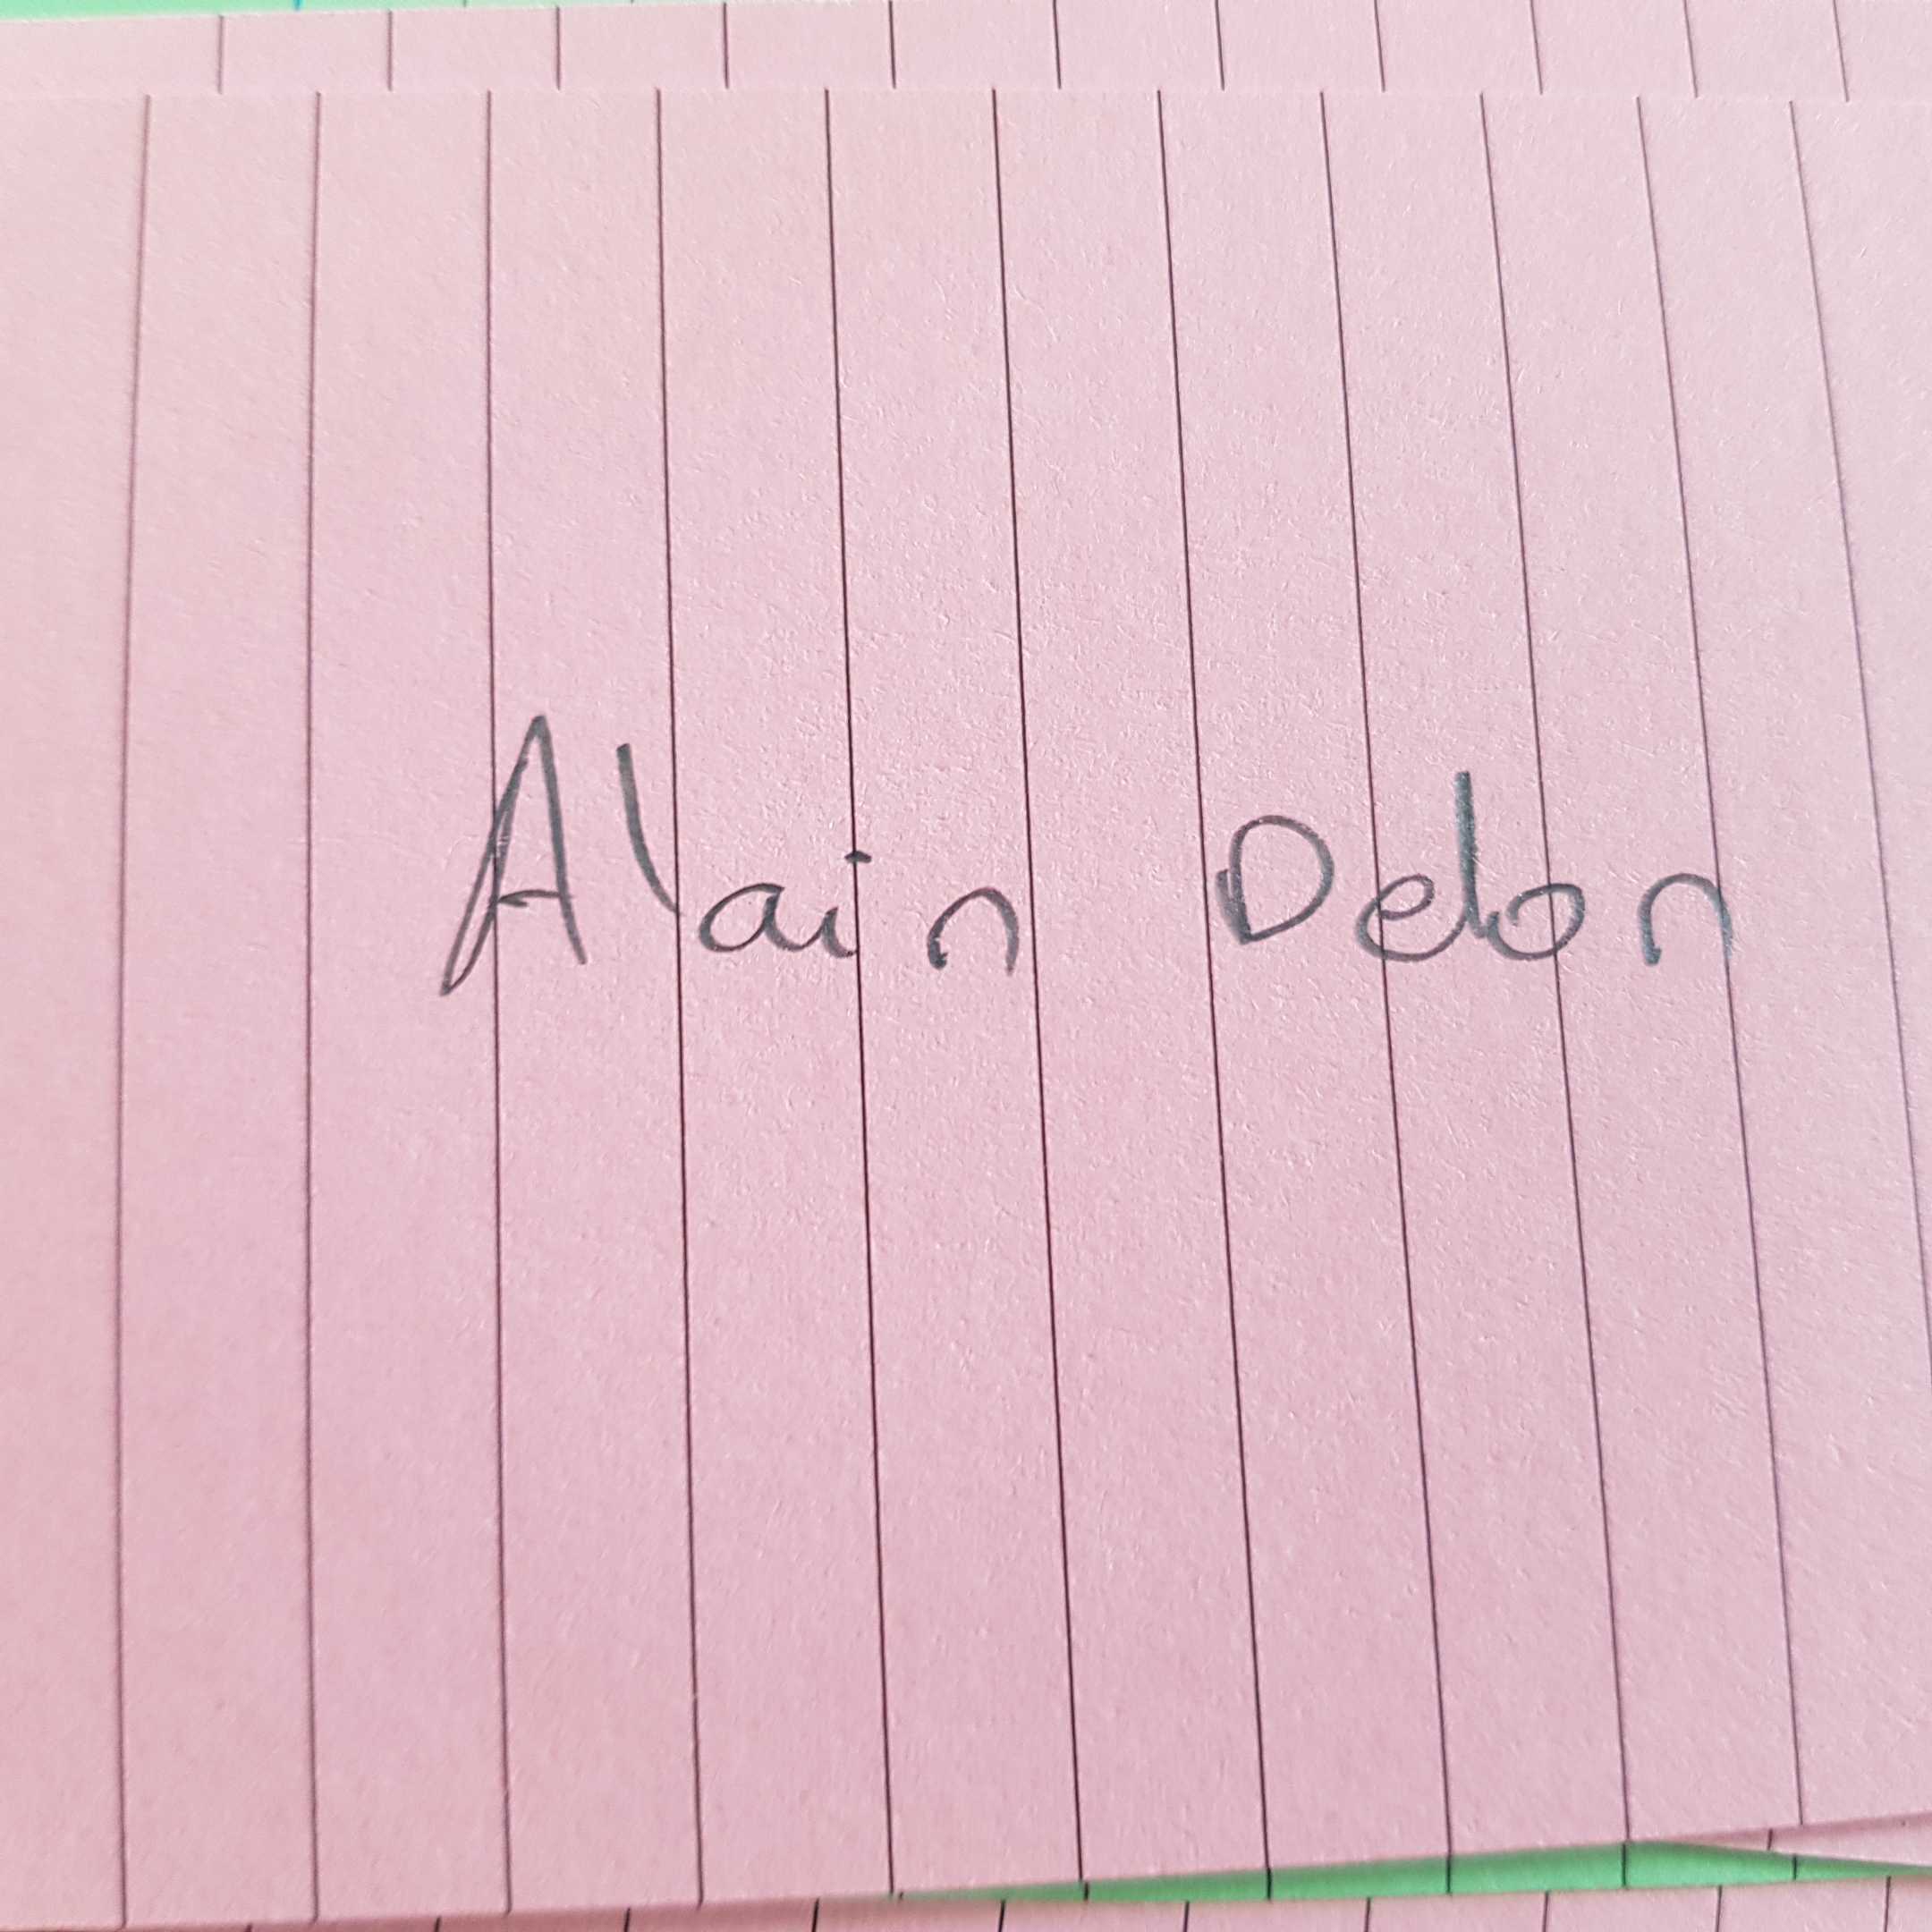 Alain Delon